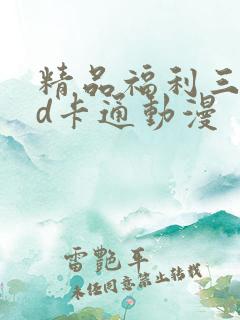 精品福利三
d卡通動漫
雷艷平
未经同意禁止转载